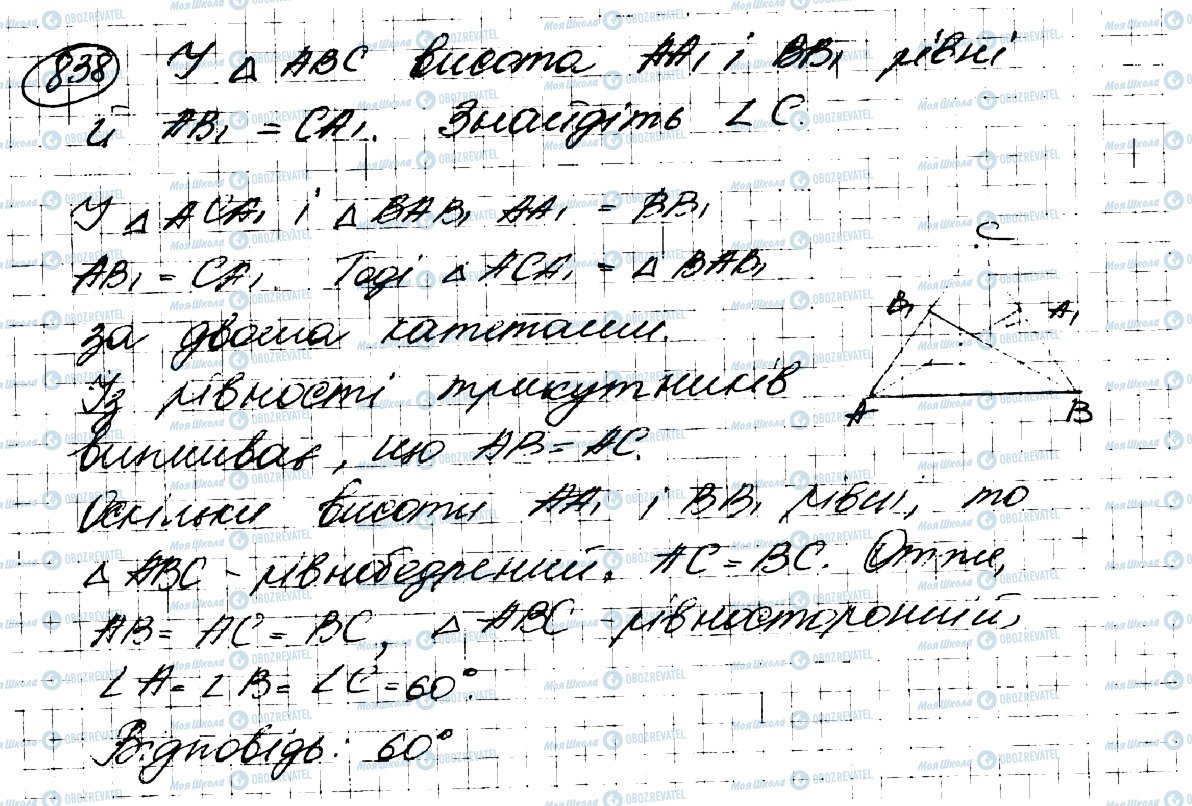 838 У △ ABC висота AA₁ і BB₁ рівні
й AB₁ = CA₁. Знайдіть ∠ C.
У △ ACA₁ і △ BAB₁ AA₁ = BB₁
AB₁ = CA₁. Тоді △ ACA₁ = △ BAB₁
за двома катетами.
Із рівності трикутників
випливає, що AB = AC.
Оскільки висоти AA₁ і BB₁ рівні, то
△ ABC - рівнобедрений. AC = BC. Отже,
AB = AC = BC, △ ABC рівносторонній,
∠ A = ∠ B = ∠ C = 60°.
Відповідь: 60°
C
B₁ A₁
A B